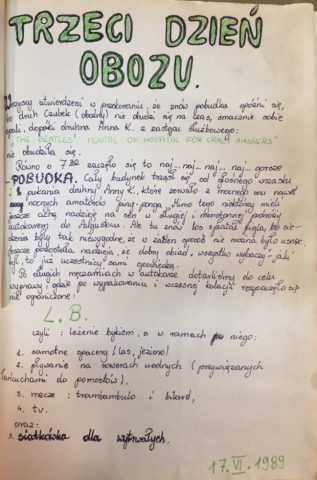 TRZECI DZIEŃ
OBOZU.
Wszyscy utwierdzeni w przekonaniu, że znów pobudka opóźni się,
bo druh Czubek (oboźny) nie obudzi się na czas, smacznie sobie
spali, dopóki druhna Anna K. z zastępu służbowego:
"THE BEATLES' MENTAL OF HOSPITAL FOR CRAZY SINGERS"
nie obudziła się.
Równo o 7 30 zaczęło się to naj... naj... naj... naj... gorsze
POBUDKA. Cały budynek trząsł się od głośnego wrzasku
i pukania druhny Anny K, które zerwało z mocnego snu nawet
nocnych amatorów ping-ponga. Mimo tego niektórzy mieli
jeszcze cichą nadzieję na sen w długiej i monotonnej podróży
autokarem do Augustowa. Ale tu znów los spłatał figla, bo sie-
dzenia były tak niewygodne, że w żaden sposób nie można było usnąć.
Jeszcze pozostała nadzieja, że dobry obiad, wszystko wybaczy - jaki
był to już uczestnicy sami opowiedzą.
Po długich męczarniach w autokarze dotarliśmy do celu
wyprawy, gdzie po wypakowaniu i wczesnej kolacji rozpoczęło się
nie ograniczone:
L. B.
czyli: leżenie bykiem, a w ramach jego:
1. samotne spacery (las, jezioro)
2. pływanie na rowerach wodnych (przywiązanych
łańcuchami do pomostów),
3. mecze: trambambulo i bilard,
4. tv.
oraz:
5. siatkówka dla wytrwałych.
17. VI. 1989